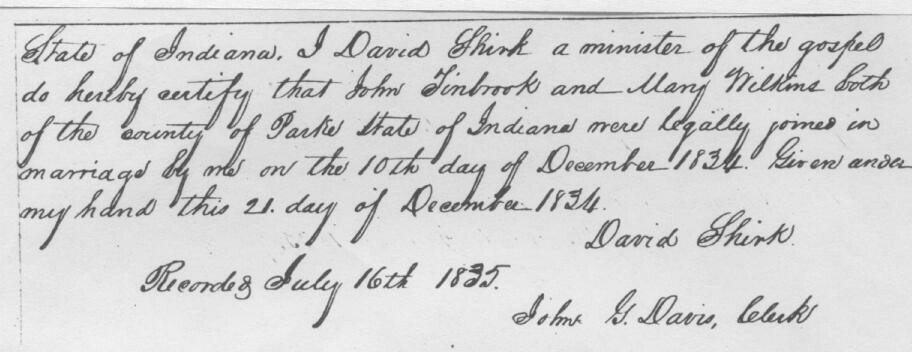 State of Indiana. I David Shirk a minister of the gospel
do hereby certify that John Tinbrook and Mary Wilkins both
of the county of Parke State of Indiana were legally joined in
marriage by me on the 10th day of December 1834. Given under
my hand this 21. day of December 1834.
David Shirk.
Recorded July 16th 1835.
John G. Davis, Clerk